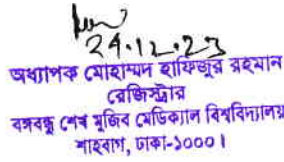 24.12.23
অধ্যাপক মোহাম্মদ হাফিজুর রহমান
রেজিস্ট্রার
বঙ্গবন্ধু শেখ মুজিব মেডিক্যাল বিশ্ববিদ্যালয়
শাহবাগ, ঢাকা-১০০০।